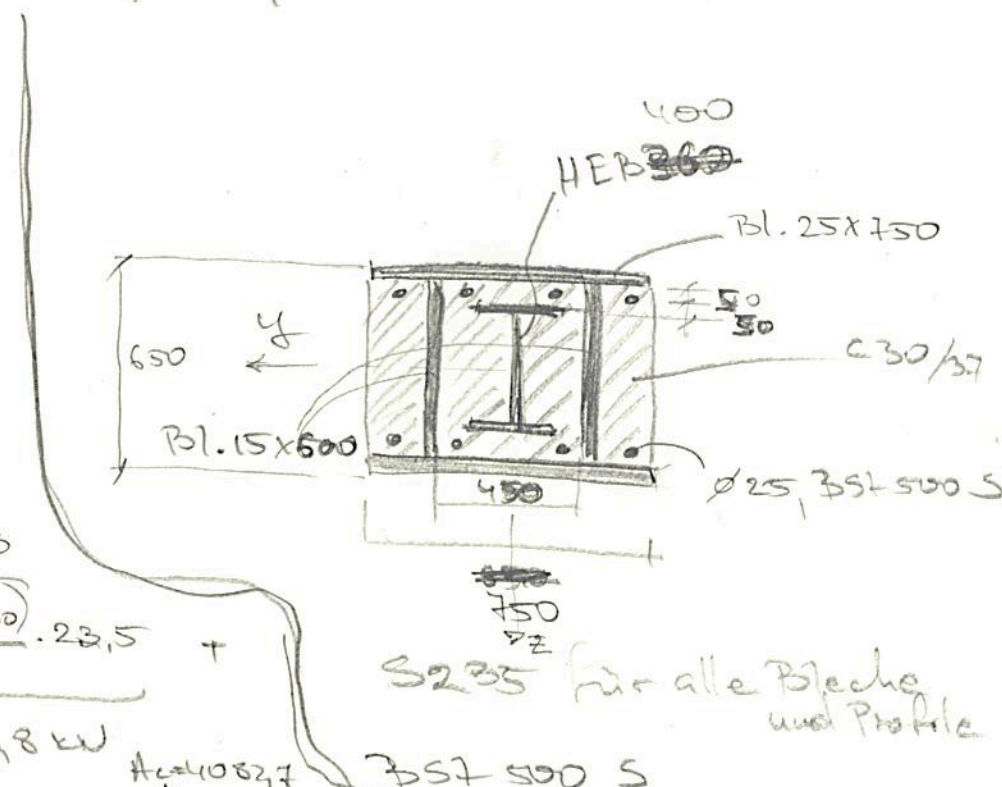 400
HEB 360
Bl. 25x750
50
50
C30/37
y
650
Bl. 15x600
450
ø25, BSt 500 S
750
z
0) . 23,5 +
,8 kN
S235 für alle Bleche
und Profile
Ac=40827
BSt 500 S